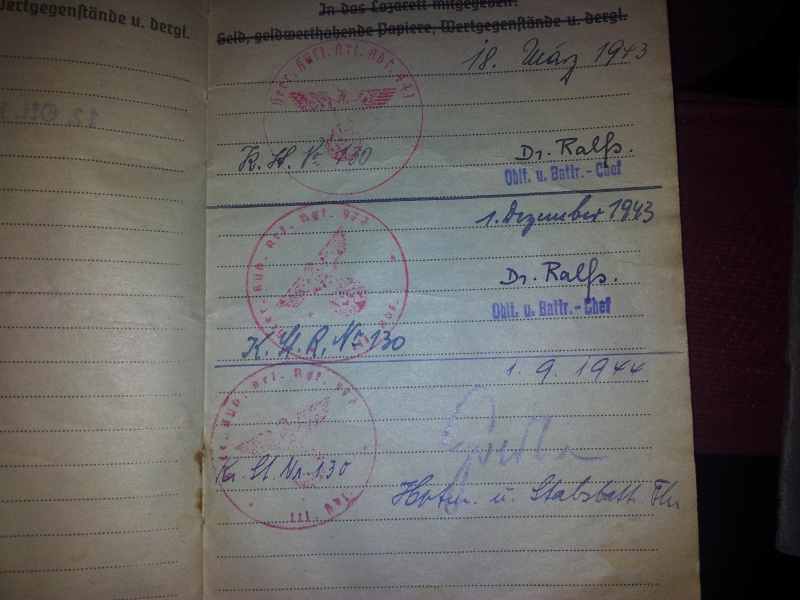 Wertgegenstände u. dergl.
In das Lazarett mitgegeben:
Geld, geldwerthabende Papiere, Wertgegenstände u. dergl.
18. März 1943
K. St. Nr 130
Dr. Ralfs.
Oblt. u. Battr.-Chef
1. Dezember 1943
Dr. Ralfs.
Oblt. u. Battr.-Chef
K. St. R. Nr 130
1. 9. 1944
Kr. St. Nr. 130
Hptm. u. Stabsbatt. Fhr
III. Abt